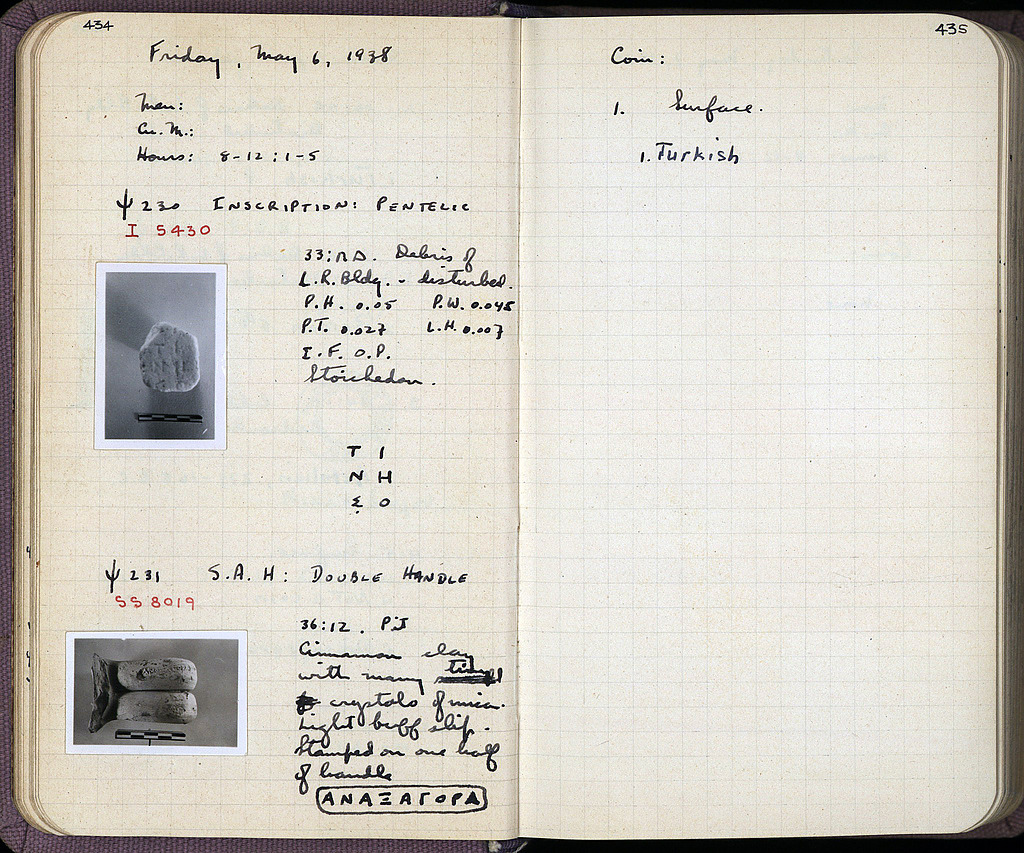 434
Friday, May 6, 1938
Men:
Cu. M.:
Hours: 8-12 : 1-5
ψ 230 INSCRIPTION: PENTELIC
I 5430
33:ΠΔ. Debris of
L.R. Bldg. - disturbed.
P.H. 0.05 P.W. 0.045
P.T. 0.027 L.H. 0.007
I.F. O.P.
Stoichedon.
T I
N H
Σ̣ O
ψ 231 S.A.H: DOUBLE HANDLE
SS 8019
36:12. Pit
Cinnamon clay
with many tiny
crystals of mica.
Light buff slip.
Stamped on one half
of handle
ΑΝΑΞΑΓΟΡΑ
435
Coin:
1. Surface.
1. Turkish